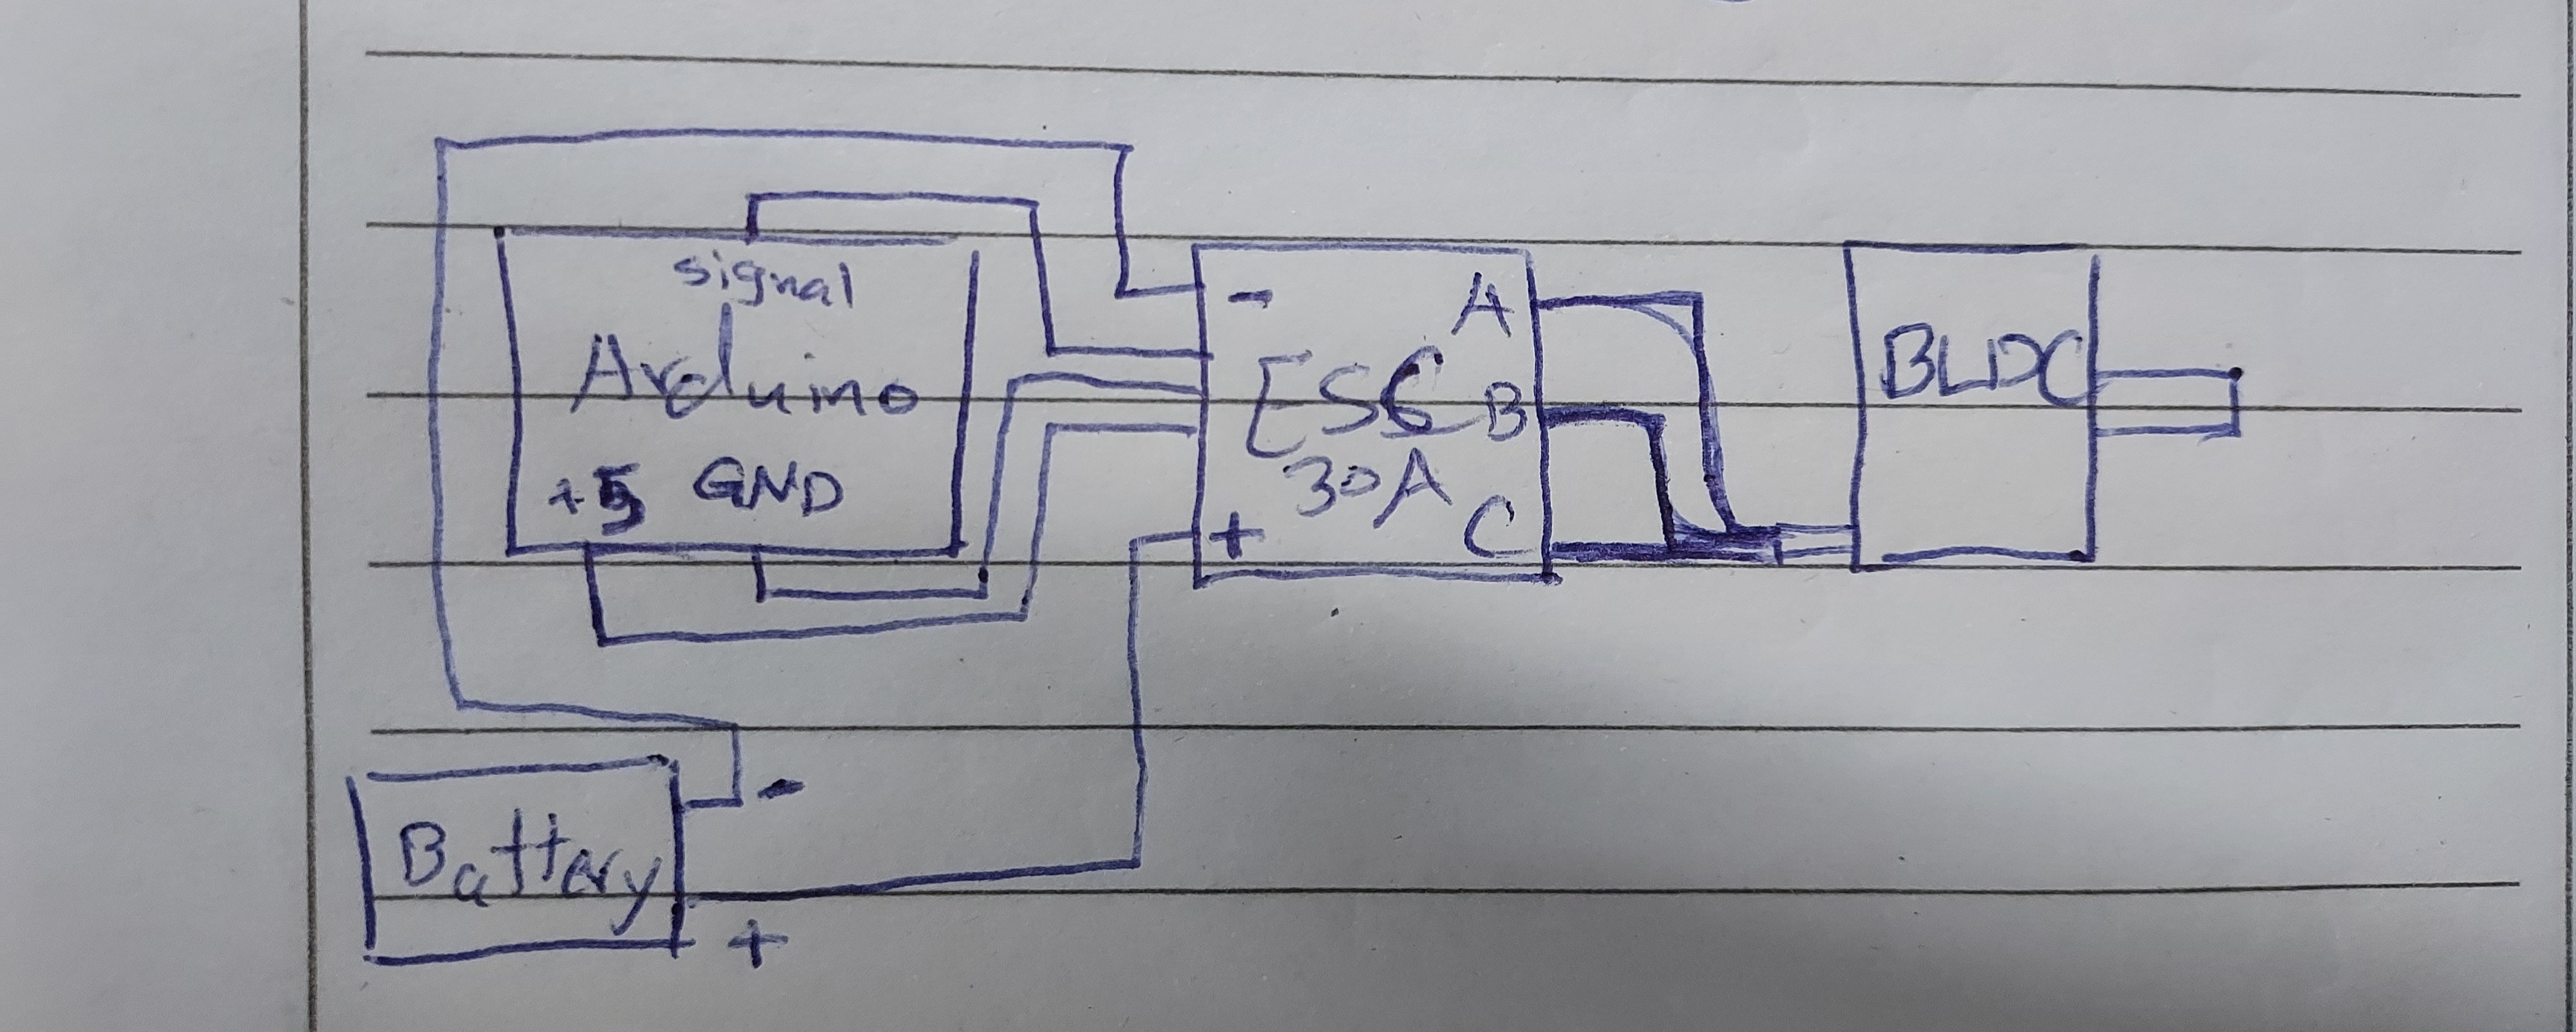 signal
Arduino
+5 GND
-
A
ESC
B
30A
C
+
BLDC
-
Battery
+